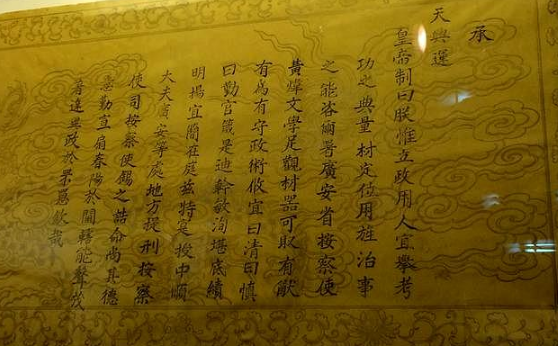 承
天興運
皇帝制曰朕惟立政用人宜擧考
功之典量材定位用旌治事
之能咨爾署廣安省按察使
黃燁文學足觀材器可取有猷
有為有守政術攸宜曰清曰慎
曰勤官箴是迪幹敏洵堪底績
明揚宜簡在庭茲特授中順
大夫廣安等處地方提刑按察
使司按察使錫之誥命尚其德
勤宣春陽於關轄能聲茂
著達政於欽哉